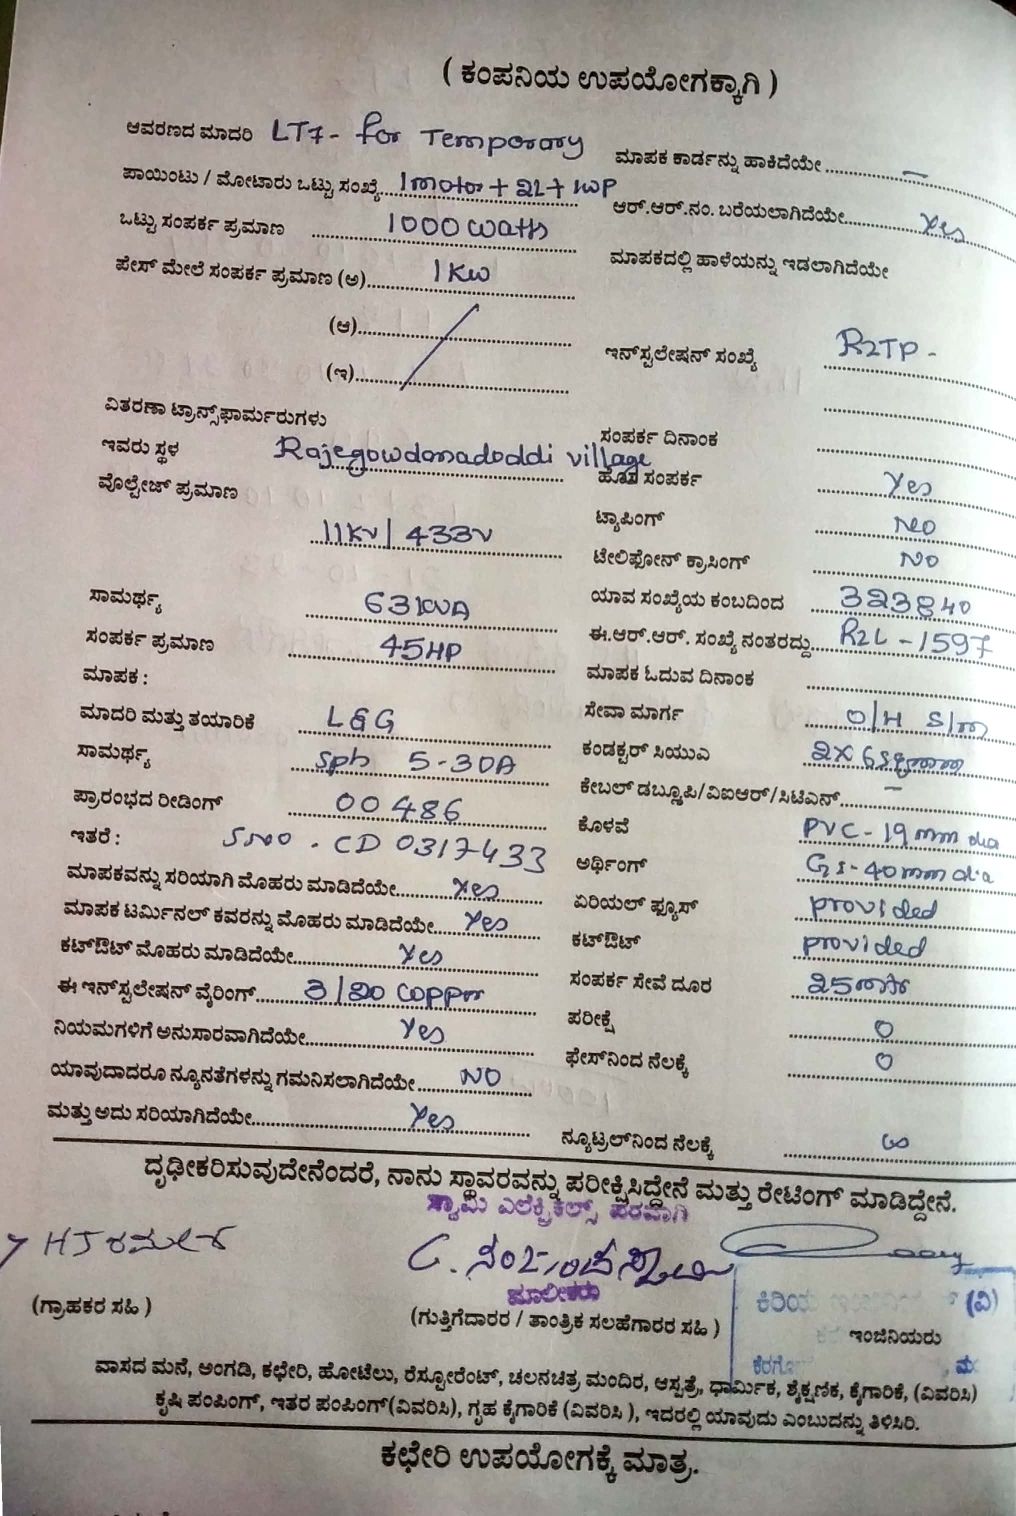 ( ಕಂಪನಿಯ ಉಪಯೋಗಕ್ಕಾಗಿ )
ಆವರಣದ ಮಾದರಿ LT7- for Temporary
ಮಾಪಕ ಕಾರ್ಡನ್ನು ಹಾಕಿದೆಯೇ -
ಪಾಯಿಂಟು / ಮೋಟಾರು ಒಟ್ಟು ಸಂಖ್ಯೆ 1 motor + 2L + 1WP
ಆರ್.ಆರ್.ನಂ. ಬರೆಯಲಾಗಿದೆಯೇ Yes
ಒಟ್ಟು ಸಂಪರ್ಕ ಪ್ರಮಾಣ 1000 watts
ಮಾಪಕದಲ್ಲಿ ಹಾಳೆಯನ್ನು ಇಡಲಾಗಿದೆಯೇ
ಪೇಸ್ ಮೇಲೆ ಸಂಪರ್ಕ ಪ್ರಮಾಣ (ಅ) 1 KW
(ಆ)
ಇನ್‌ಸ್ಟಲೇಷನ್ ಸಂಖ್ಯೆ R2TP -
(ಇ)
ವಿತರಣಾ ಟ್ರಾನ್ಸ್‌ಫಾರ್ಮರುಗಳು
ಸಂಪರ್ಕ ದಿನಾಂಕ
ಇವರು ಸ್ಥಳ Rajegowdanadoddi village
ಹೊಸ ಸಂಪರ್ಕ Yes
ವೊಲ್ಟೇಜ್ ಪ್ರಮಾಣ 11KV/433V
ಟ್ಯಾಪಿಂಗ್ NO
ಟೇಲಿಫೋನ್ ಕ್ರಾಸಿಂಗ್ NO
ಸಾಮರ್ಥ್ಯ 63KVA
ಯಾವ ಸಂಖ್ಯೆಯ ಕಂಬದಿಂದ 323840
ಸಂಪರ್ಕ ಪ್ರಮಾಣ 45HP
ಈ.ಆರ್.ಆರ್. ಸಂಖ್ಯೆ ನಂತರದ್ದು R2L - 1597
ಮಾಪಕ :
ಮಾಪಕ ಓದುವ ದಿನಾಂಕ
ಮಾದರಿ ಮತ್ತು ತಯಾರಿಕೆ L&G
ಸೇವಾ ಮಾರ್ಗ O/H S/m
ಸಾಮರ್ಥ್ಯ Sph 5-30A
ಕಂಡಕ್ಟರ್ ಸಿಯುಎ 2X6sqmm
ಪ್ರಾರಂಭದ ರೀಡಿಂಗ್ 00486
ಕೇಬಲ್ ಡಬ್ಲೂಪಿ/ವಿಐಆರ್/ಸಿಟಿಎಸ್ -
ಇತರೆ : SNO . CD 0317433
ಕೊಳವೆ PVC - 19mm dia
ಅರ್ಥಿಂಗ್ GI - 40mm dia
ಮಾಪಕವನ್ನು ಸರಿಯಾಗಿ ಮೊಹರು ಮಾಡಿದೆಯೇ Yes
ಏರಿಯಲ್ ಫ್ಯೂಸ್ provided
ಮಾಪಕ ಟರ್ಮಿನಲ್ ಕವರನ್ನು ಮೊಹರು ಮಾಡಿದೆಯೇ Yes
ಕಟ್‌ಔಟ್ provided
ಕಟ್‌ಔಟ್ ಮೊಹರು ಮಾಡಿದೆಯೇ Yes
ಸಂಪರ್ಕ ಸೇವೆ ದೂರ 25
ಈ ಇನ್‌ಸ್ಟಲೇಷನ್ ವೈರಿಂಗ್ 3/20 copper
ಪರೀಕ್ಷೆ 0
ನಿಯಮಗಳಿಗೆ ಅನುಸಾರವಾಗಿದೆಯೇ Yes
ಫೇಸ್‌ನಿಂದ ನೆಲಕ್ಕೆ 0
ಯಾವುದಾದರೂ ನ್ಯೂನತೆಗಳನ್ನು ಗಮನಿಸಲಾಗಿದೆಯೇ NO
ಮತ್ತು ಅದು ಸರಿಯಾಗಿದೆಯೇ Yes
ನ್ಯೂಟ್ರಲ್‌ನಿಂದ ನೆಲಕ್ಕೆ
ದೃಢೀಕರಿಸುವುದೇನೆಂದರೆ, ನಾನು ಸ್ಥಾವರವನ್ನು ಪರೀಕ್ಷಿಸಿದ್ದೇನೆ ಮತ್ತು ರೇಟಿಂಗ್ ಮಾಡಿದ್ದೇನೆ.
ಸ್ವಾಮಿ ಎಲೆಕ್ಟ್ರಿಕಲ್ಸ್ ಪರವಾಗಿ
ಮಾಲೀಕರು
ಕಿರಿಯ (ವಿ)
(ಗ್ರಾಹಕರ ಸಹಿ )
(ಗುತ್ತಿಗೆದಾರರ / ತಾಂತ್ರಿಕ ಸಲಹೆಗಾರರ ಸಹಿ )
ಇಂಜಿನಿಯರು
ವಾಸದ ಮನೆ, ಅಂಗಡಿ, ಕಛೇರಿ, ಹೋಟೆಲು, ರೆಸ್ಟೋರೆಂಟ್, ಚಲನಚಿತ್ರ ಮಂದಿರ, ಆಸ್ಪತ್ರೆ, ಧಾರ್ಮಿಕ, ಶೈಕ್ಷಣಿಕ, ಕೈಗಾರಿಕೆ, (ವಿವರಿಸಿ)
ಕೃಷಿ ಪಂಪಿಂಗ್, ಇತರ ಪಂಪಿಂಗ್(ವಿವರಿಸಿ), ಗೃಹ ಕೈಗಾರಿಕೆ (ವಿವರಿಸಿ ), ಇದರಲ್ಲಿ ಯಾವುದು ಎಂಬುದನ್ನು ತಿಳಿಸಿರಿ.
ಕಛೇರಿ ಉಪಯೋಗಕ್ಕೆ ಮಾತ್ರ.